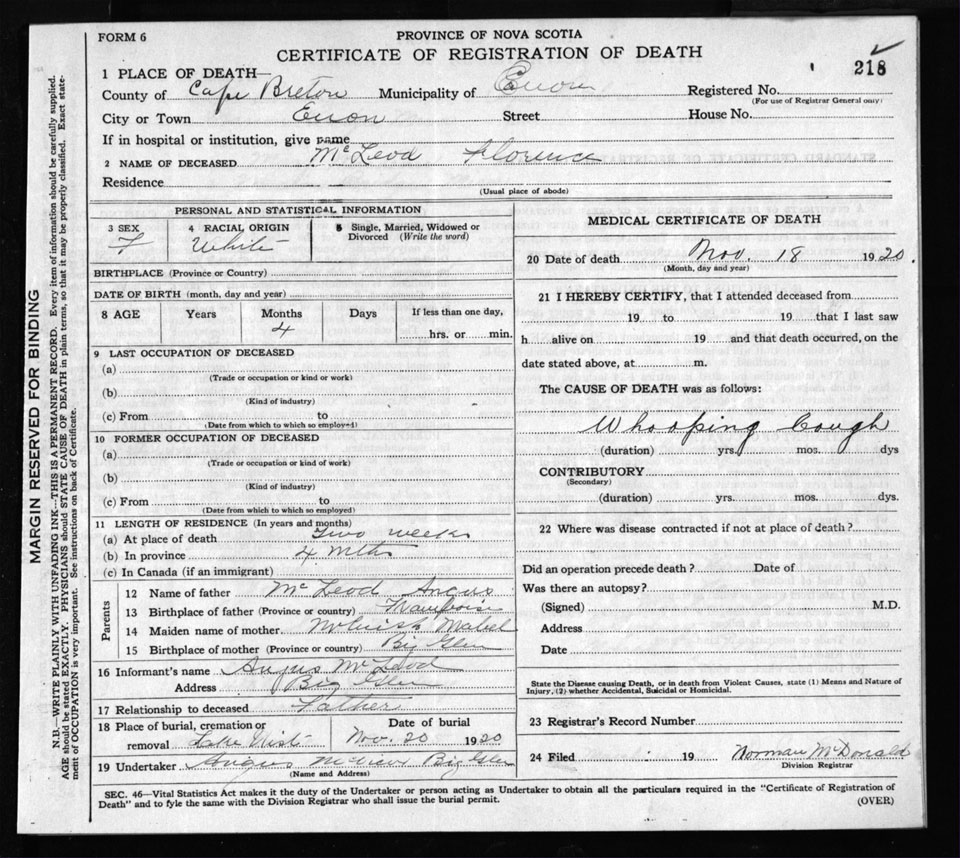 FORM 6
PROVINCE OF NOVA SCOTIA
CERTIFICATE OF REGISTRATION OF DEATH
218
1 PLACE OF DEATH—
County of Cape Breton Municipality of Enon Registered No.
(For use of Registrar General only)
City or Town Enon Street House No.
If in hospital or institution, give name
2 NAME OF DECEASED McLeod Florence
Residence
(Usual place of abode)
PERSONAL AND STATISTICAL INFORMATION
3 SEX F
4 RACIAL ORIGIN White
5 Single, Married, Widowed or Divorced (Write the word)
BIRTHPLACE (Province or Country)
DATE OF BIRTH (month, day and year)
8 AGE Years Months 4 Days If less than one day, hrs. or min.
9 LAST OCCUPATION OF DECEASED
(a)
(Trade or occupation or kind or work)
(b)
(Kind of industry)
(c) From to
(Date from which to which so employed)
10 FORMER OCCUPATION OF DECEASED
(a)
(Trade or occupation or kind of work)
(b)
(Kind of industry)
(c) From to
(Date from which to which so employed)
11 LENGTH OF RESIDENCE (In years and months)
(a) At place of death Two weeks
(b) In province 4 mths
(c) In Canada (if an immigrant)
Parents
12 Name of father McLeod Angus
13 Birthplace of father (Province or country) Framboise
14 Maiden name of mother Mabel
15 Birthplace of mother (Province or country) Big Glen
16 Informant's name Angus McLeod
Address Big Glen
17 Relationship to deceased Father
18 Place of burial, cremation or removal Loch Date of burial Nov. 20 1920
19 Undertaker Angus Big Glen
(Name and Address)
MEDICAL CERTIFICATE OF DEATH
20 Date of death Nov. 18 1920.
(Month, day and year)
21 I HEREBY CERTIFY, that I attended deceased from
19 to 19 that I last saw
h alive on 19 and that death occurred, on the
date stated above, at m.
The CAUSE OF DEATH was as follows:
Whooping Cough
(duration) yrs. mos. dys
CONTRIBUTORY
(Secondary)
(duration) yrs. mos. dys.
22 Where was disease contracted if not at place of death?
Did an operation precede death? Date of
Was there an autopsy?
(Signed) M.D.
Address
Date
State the Disease causing Death, or in death from Violent Causes, state (1) Means and Nature of
Injury, (2) whether Accidental, Suicidal or Homicidal.
23 Registrar's Record Number
24 Filed 19 Norman McDonald
Division Registrar
SEC. 46—Vital Statistics Act makes it the duty of the Undertaker or person acting as Undertaker to obtain all the particulars required in the "Certificate of Registration of
Death" and to fyle the same with the Division Registrar who shall issue the burial permit.
(OVER)
MARGIN RESERVED FOR BINDING
N.B.—WRITE PLAINLY WITH UNFADING INK—THIS IS A PERMANENT RECORD. Every item of information should be carefully supplied.
AGE should be stated EXACTLY. PHYSICIANS should STATE CAUSE OF DEATH in plain terms, so that it may be properly classified. Exact state-
ment of OCCUPATION is very important. See instructions on back of Certificate.